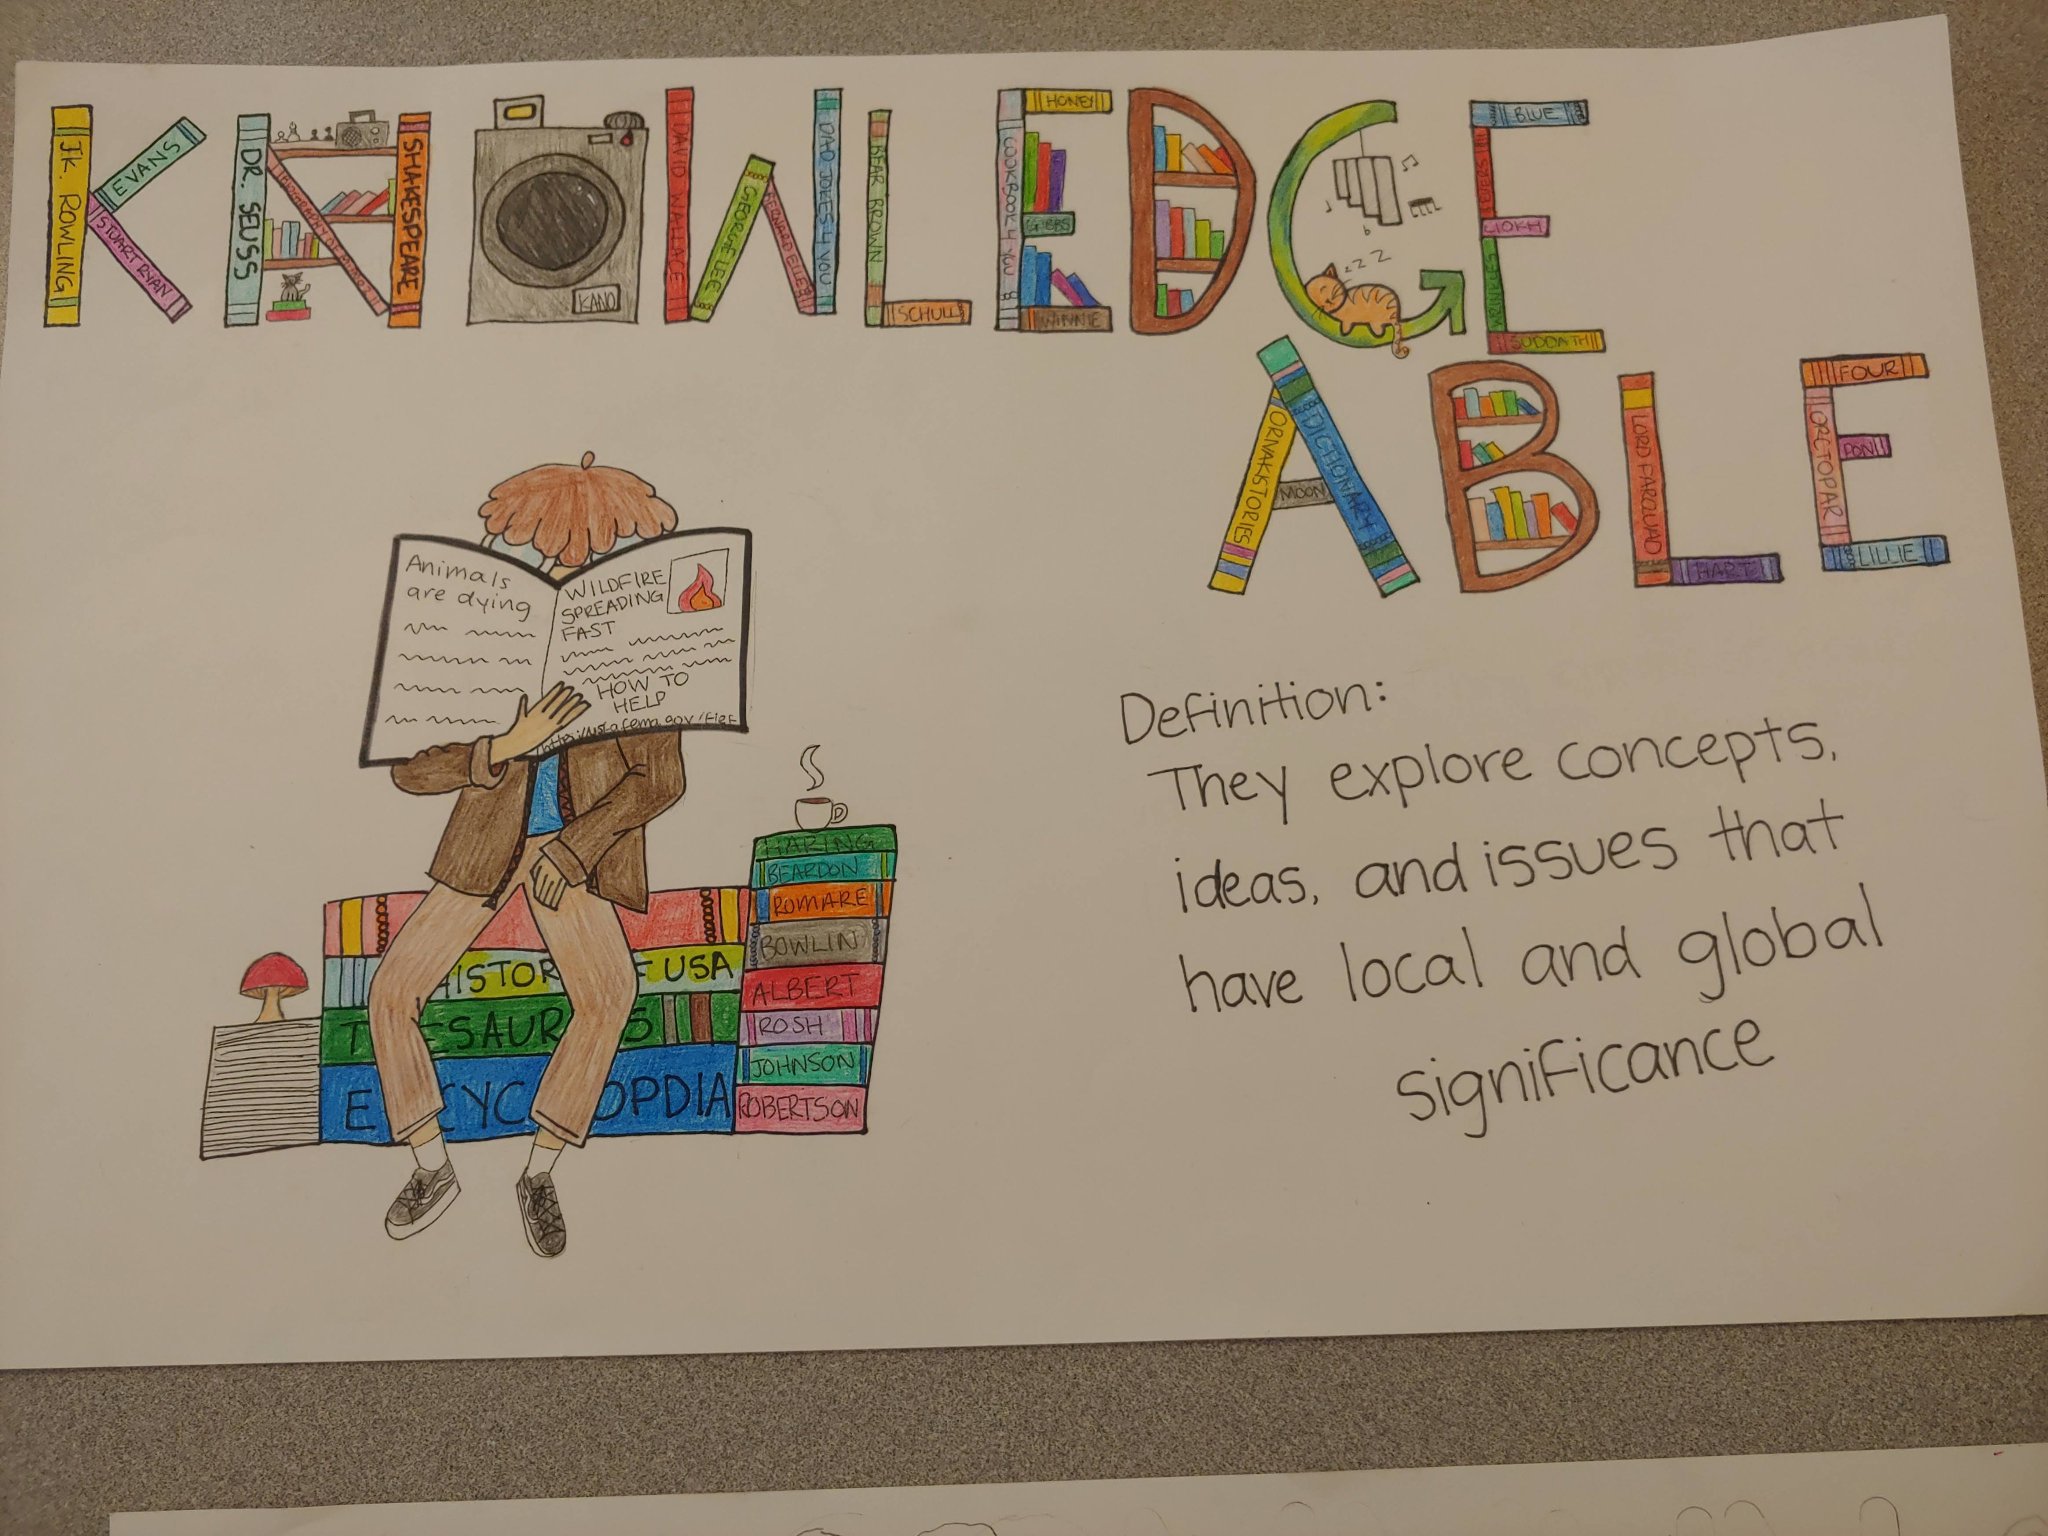 KNOWLEDGE
ABLE
JK. ROWLING
EVANS
STUART RYAN
DR. SEUSS
SHAKESPEARE
KANO
DAVID WALLACE
GEORGIE LEE
DAD JOKES 4 YOU
BEAR BROWN
SCHULL
COOKBOOK 4 YOU
HONEY
GIBBS
WINNIE
zzz
BLUE
SUDDATH
ORNAKISTORIES
MOON
DICTIONARY
LORD FARQUAD
HART
FOUR
ORCTOPAR
PON
LILLIE
Animals
are dying
WILDFIRE
SPREADING
FAST
HOW TO
HELP
Definition:
They explore concepts,
ideas, and issues that
have local and global
significance
HARING
BEARDON
ROMARE
BOWLIN
ALBERT
ROSH
JOHNSON
ROBERTSON
HISTOR F USA
T ESAUR S
E CYC OPDIA